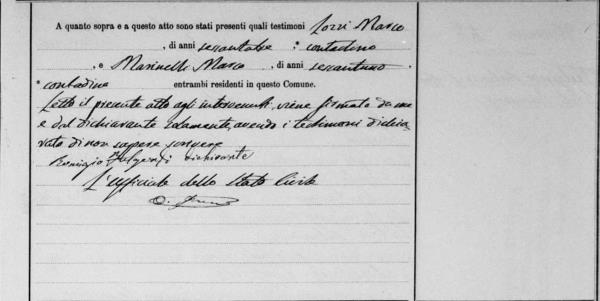 A quanto sopra e a questo atto sono stati presenti quali testimoni Lozzi Marco
, di anni sessantatre , contadino
, e Marinelli Marco , di anni sessantuno
, contadino entrambi residenti in questo Comune.
Letto il presente atto agli intervenuti, viene firmato da me
e dal dichiarante solamente, avendo i testimoni dichia
rato di non sapere scrivere
Remigio Fulgenzi dichiarante
L'ufficiale dello Stato Civile